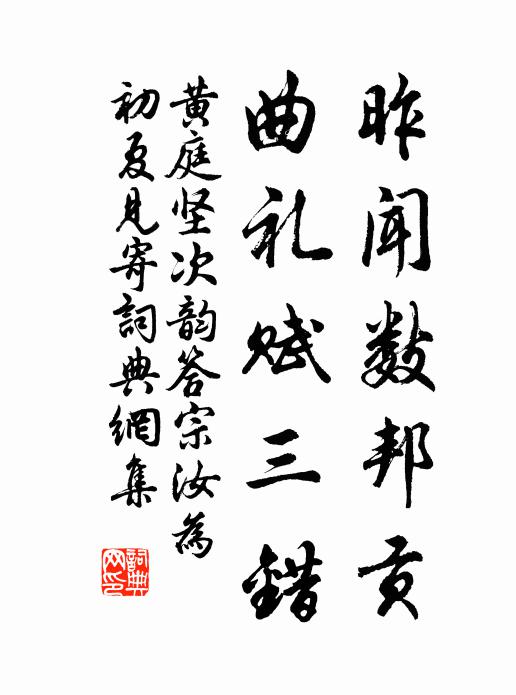 昨闻数邦贡
曲礼赋三错
黄庭坚次韵答宗汝为
初夏见寄词典網集
詞典网印